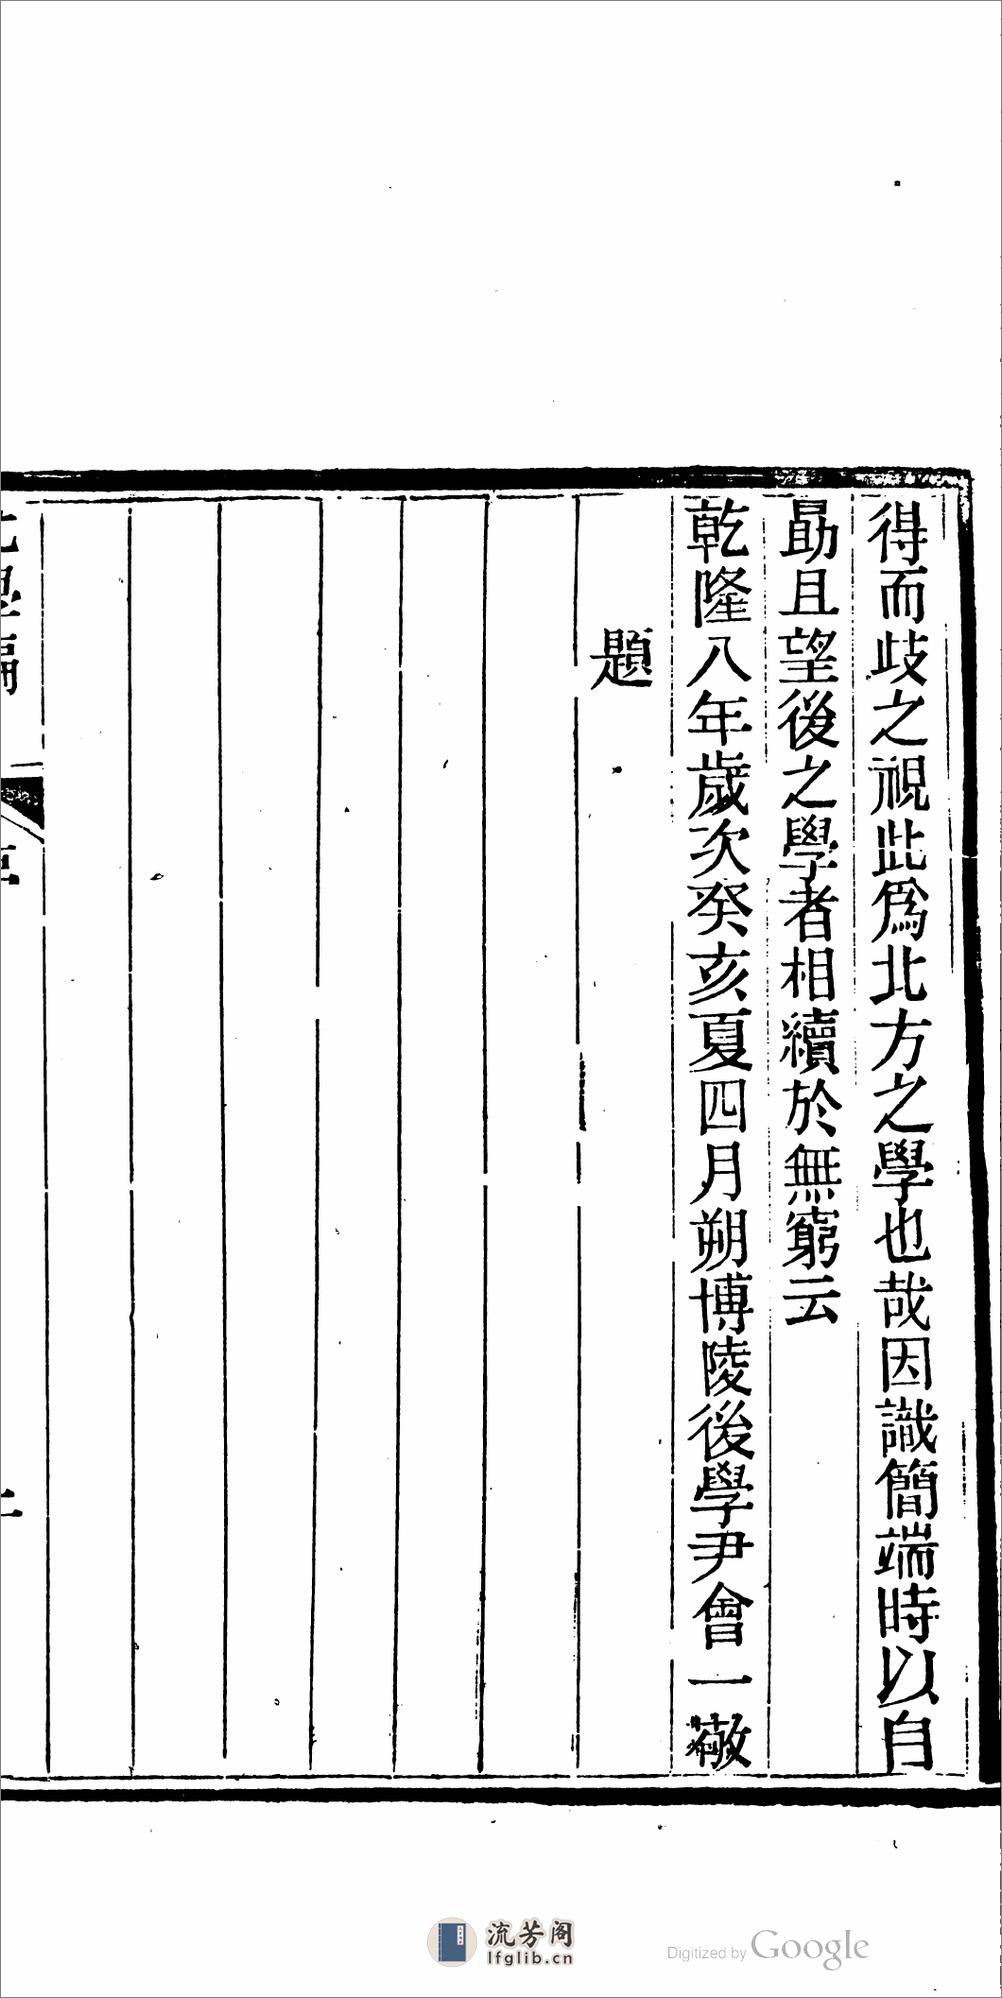 得而歧之視此爲北方之學也哉因識簡端時以自
勗且望後之學者相續於無窮云
乾隆八年歲次癸亥夏四月朔博陵後學尹會一敬
題
流芳阁
lfglib.cn
Digitized by Google